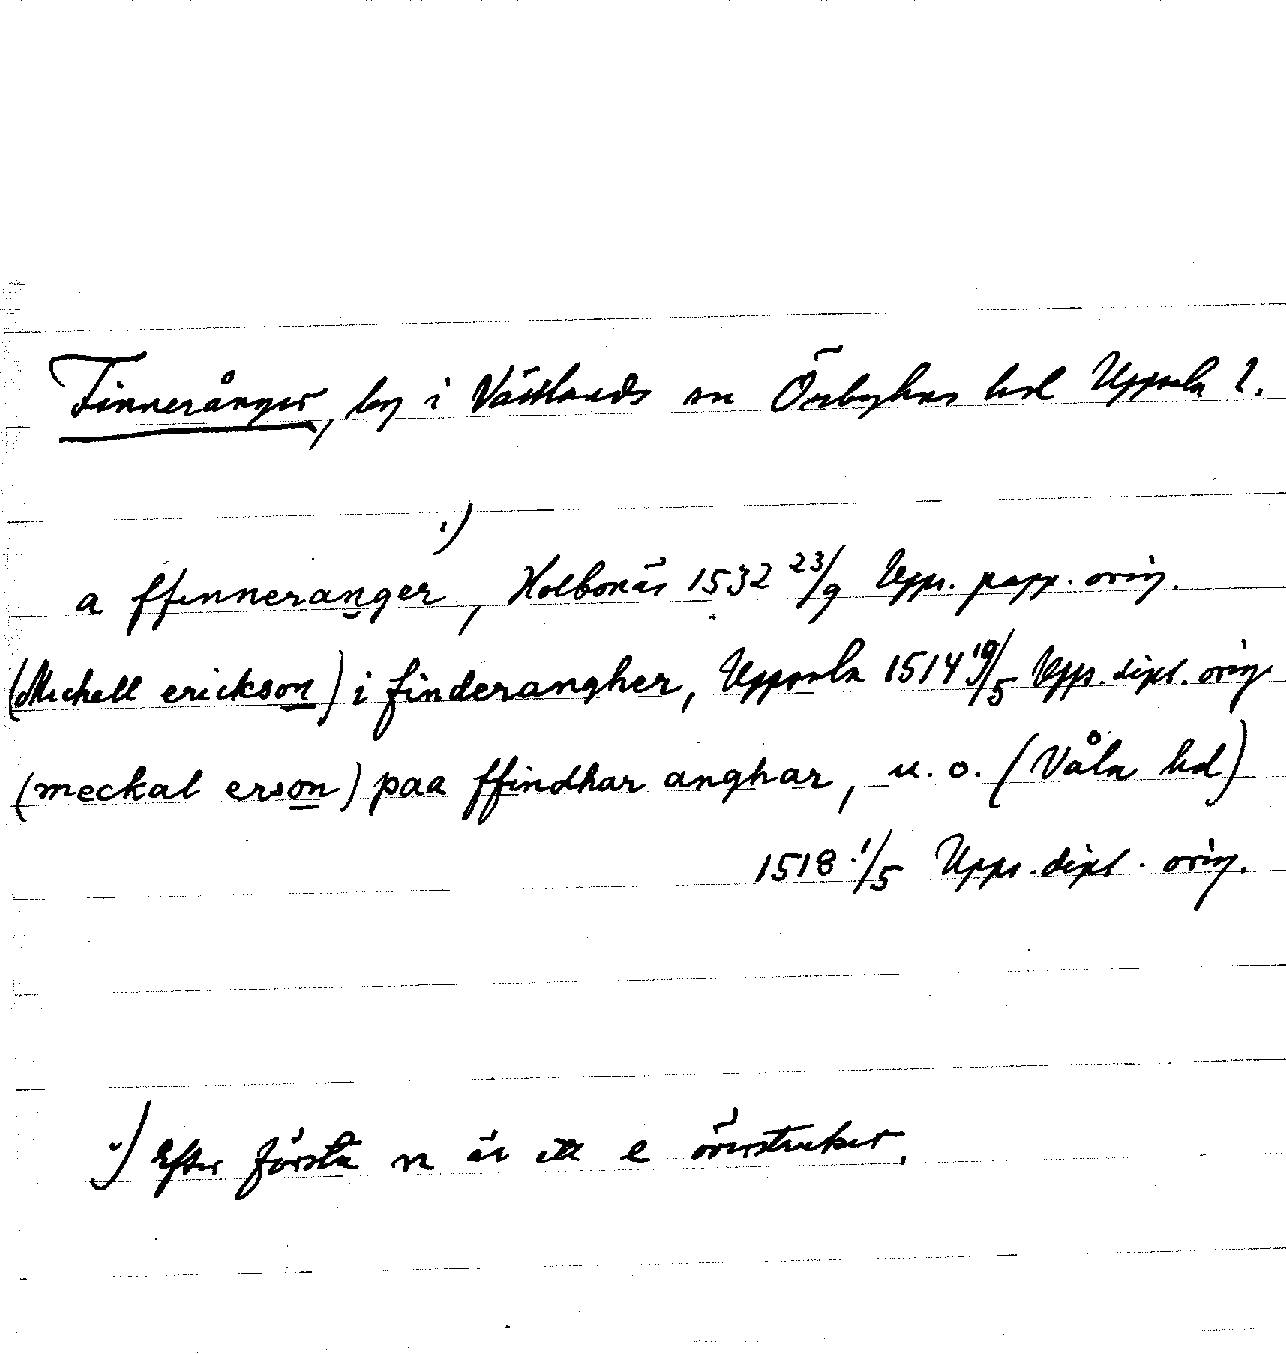 Finneränger, by i Västlands sn Örbyhus hd Uppsala l.
1)
a ffinneranger, Holbonäs 1532 23/9 Upps. papp. orig.
(Michell erickson) i finderangher, Uppsala 1514 19/5 Upps. dipl. orig
(meckal erson) paa ffindhar anghar, u. o. (Våla hd)
1518 1/5 Upps. dipl. orig.
1) Efter första n är ett e överstruket.